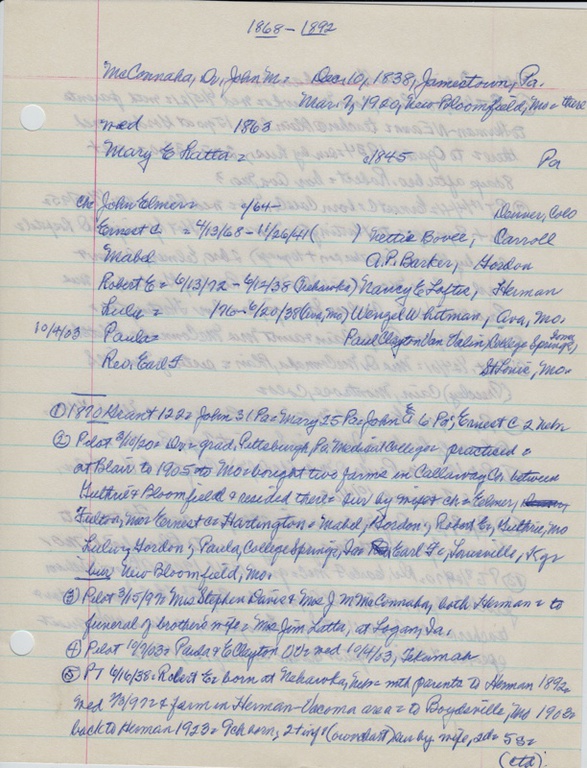 1868-1892
McConnaha, Dr. John M.= Dec. 10, 1838, Jamestown, Pa.
Mar. 7, 1920, New Bloomfield, Mo= there
wed 1863
Mary E Ratta= c1845 Pa
Ch: John Elmer= c/64- Denver, Colo
Ernest C = 4/13/68-11/26/41( ) Nettie Bovee, Carroll
Mabel A.P. Barker, Gordon
Robert E= 6/13/72-6/12/38(Nehawka) Nancy E Loftis, Herman
Lulu= /76-6/20/38(Ava, Mo) Wenzel Whitman, Ava, Mo.
10/4/03 Paula= Paul Clayton Van Valin, College Springs, Iowa
Rev. Earl F St Louis, Mo.
① 1870 Grant 122= John 31 Pa= Mary 25 Pa= John E 6 Pa, Ernest C 2 Nebr
② Pilot 3/10/20= Dr.= grad. Pittsburgh, Pa Medical College= practiced
at Blair to 1905= to Mo= bought two farms in Callaway Co. between
Guthrie & Bloomfield & resided there= sur by wife & ch= Elmer,
Fulton, Mo= Ernest C= Hartington= Mabel, Gordon, Robert E, Guthrie, Mo
Lulu, Gordon, Paula, College Springs, Ia= Earl F, Louisville, Ky=
bur New Bloomfield, Mo.
③ Pilot 3/15/97= Mrs Stephen Davis & Mrs J M McConnaha, both Herman= to
funeral of brothers wife= Mrs Jim Latta, at Logan, Ia.
④ Pilot 10/ /03= Paula & E Clayton VV= wed 10/4/03, Tekamah
⑤ PT 6/16/38= Robert E= born at Nehawka, Nebr= with parents to Herman 1892=
wed 7/3/97= & farm in Herman-Vacoma area= to Boydsville, Mo 1903=
back to Herman 1923= 9 ch born, 2+ inf 1 (own chart) sur by wife, 2d= 5s=
(ctd)